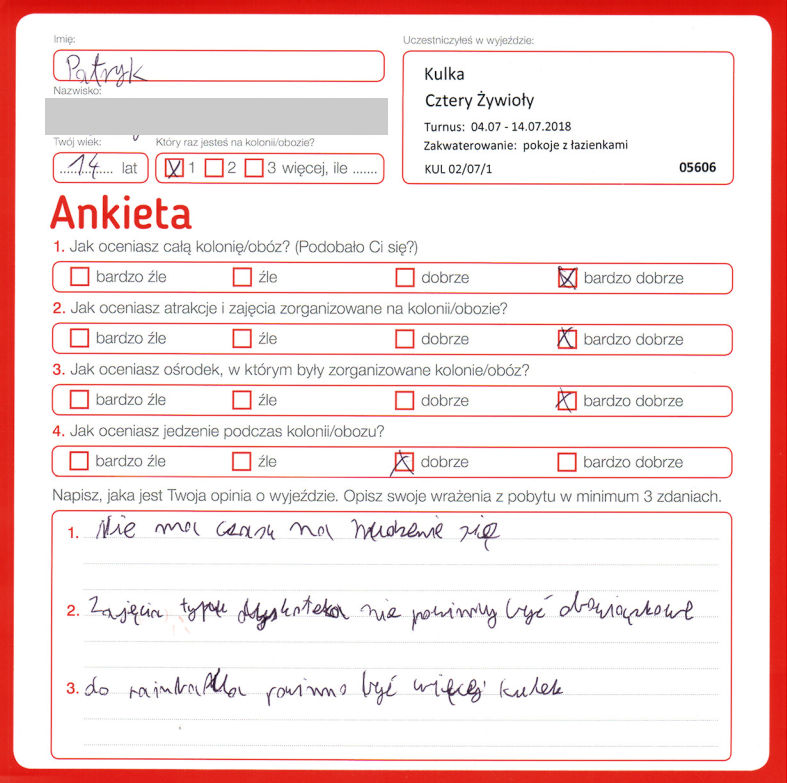 Imię:
Patryk
Nazwisko:
Twój wiek:
14 lat
Który raz jesteś na kolonii/obozie?
1 2 3 więcej, ile .......
Uczestniczyłeś w wyjeździe:
Kulka
Cztery Żywioły
Turnus: 04.07 - 14.07.2018
Zakwaterowanie: pokoje z łazienkami
KUL 02/07/1 05606
Ankieta
1. Jak oceniasz całą kolonię/obóz? (Podobało Ci się?)
bardzo źle źle dobrze bardzo dobrze
2. Jak oceniasz atrakcje i zajęcia zorganizowane na kolonii/obozie?
bardzo źle źle dobrze bardzo dobrze
3. Jak oceniasz ośrodek, w którym były zorganizowane kolonie/obóz?
bardzo źle źle dobrze bardzo dobrze
4. Jak oceniasz jedzenie podczas kolonii/obozu?
bardzo źle źle dobrze bardzo dobrze
Napisz, jaka jest Twoja opinia o wyjeździe. Opisz swoje wrażenia z pobytu w minimum 3 zdaniach.
1. Nie ma czasu na nudzenie się
2. Zajęcia typu dyskoteka nie powinny być obowiązkowe
3. do painballa powinno być więcej kulek